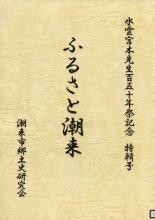 水雲宮本先生百五十年祭記念 特輯号
ふるさと潮来
潮来市郷土史研究会